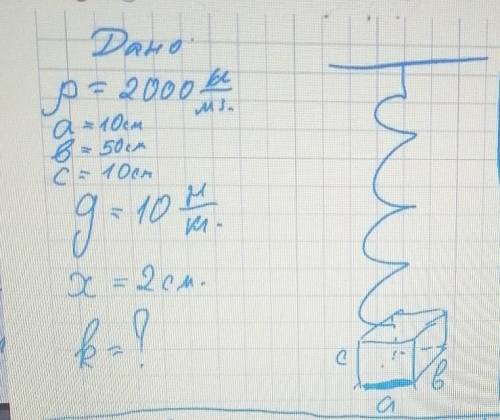 Дано
ρ = 2000 кг/м³.
a = 10см
в = 50см
c = 10см
g = 10 Н/кг.
x = 2см.
k = ?
c
в
a